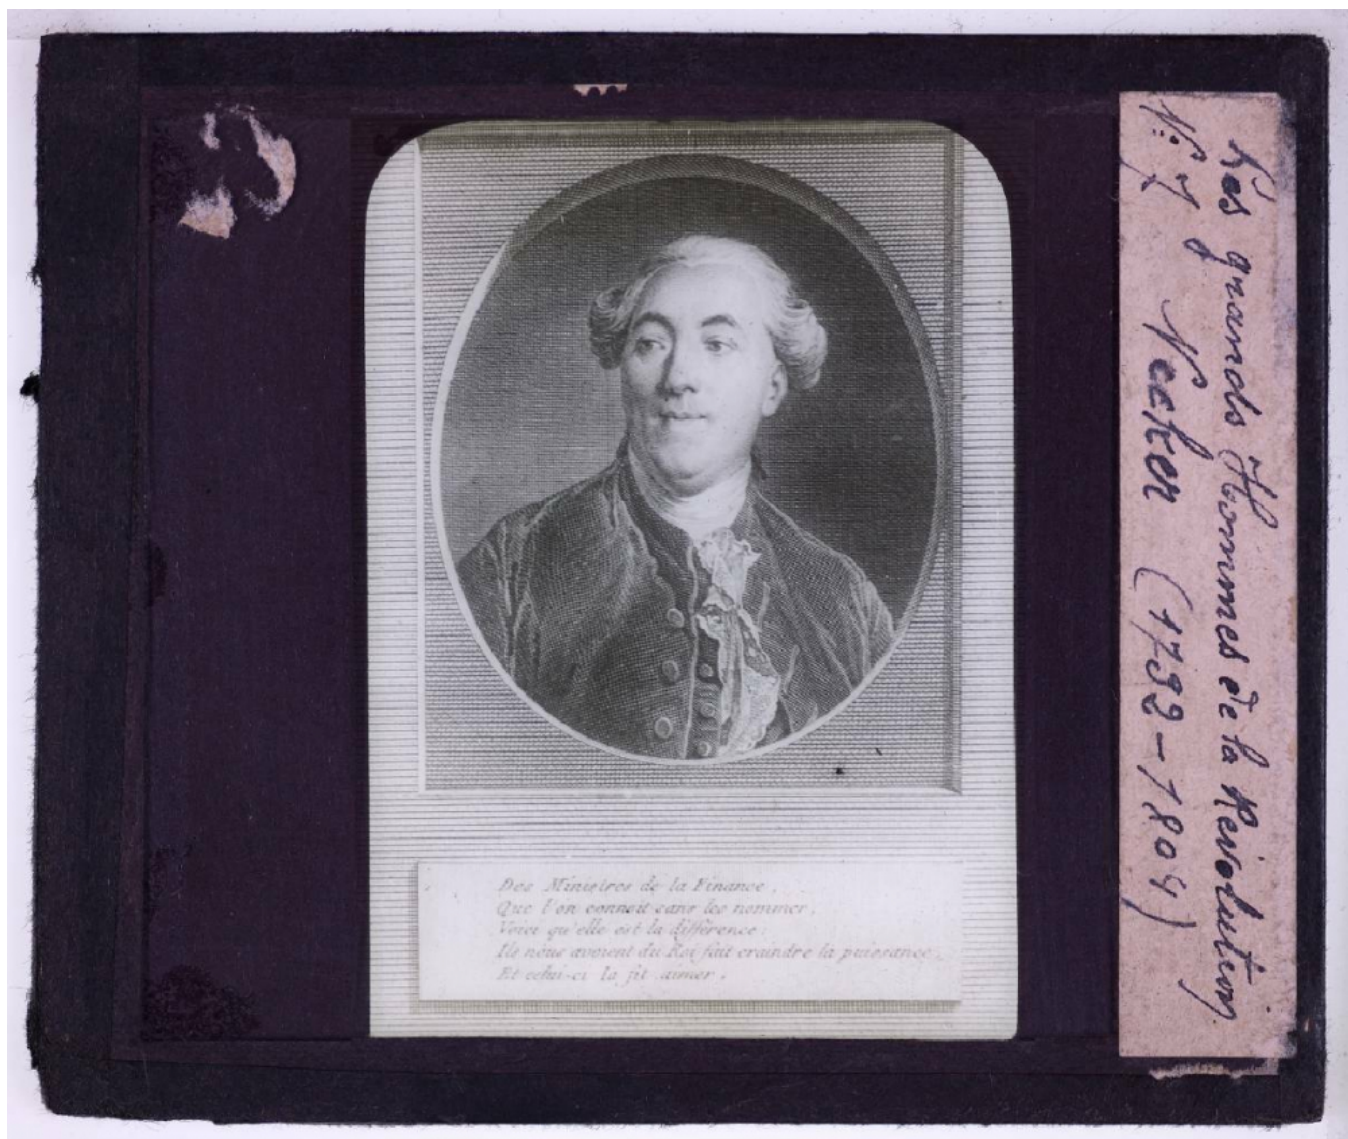 Des Ministres de la Finance,
Que l'on connoit sans les nommer,
Voici qu'elle est la différence:
Ils nous avoient du Roi fait craindre la puissance,
Et celui-ci la fit aimer.
Les grands Hommes de la Révolution
N:º 7 Necker (1732-1804)